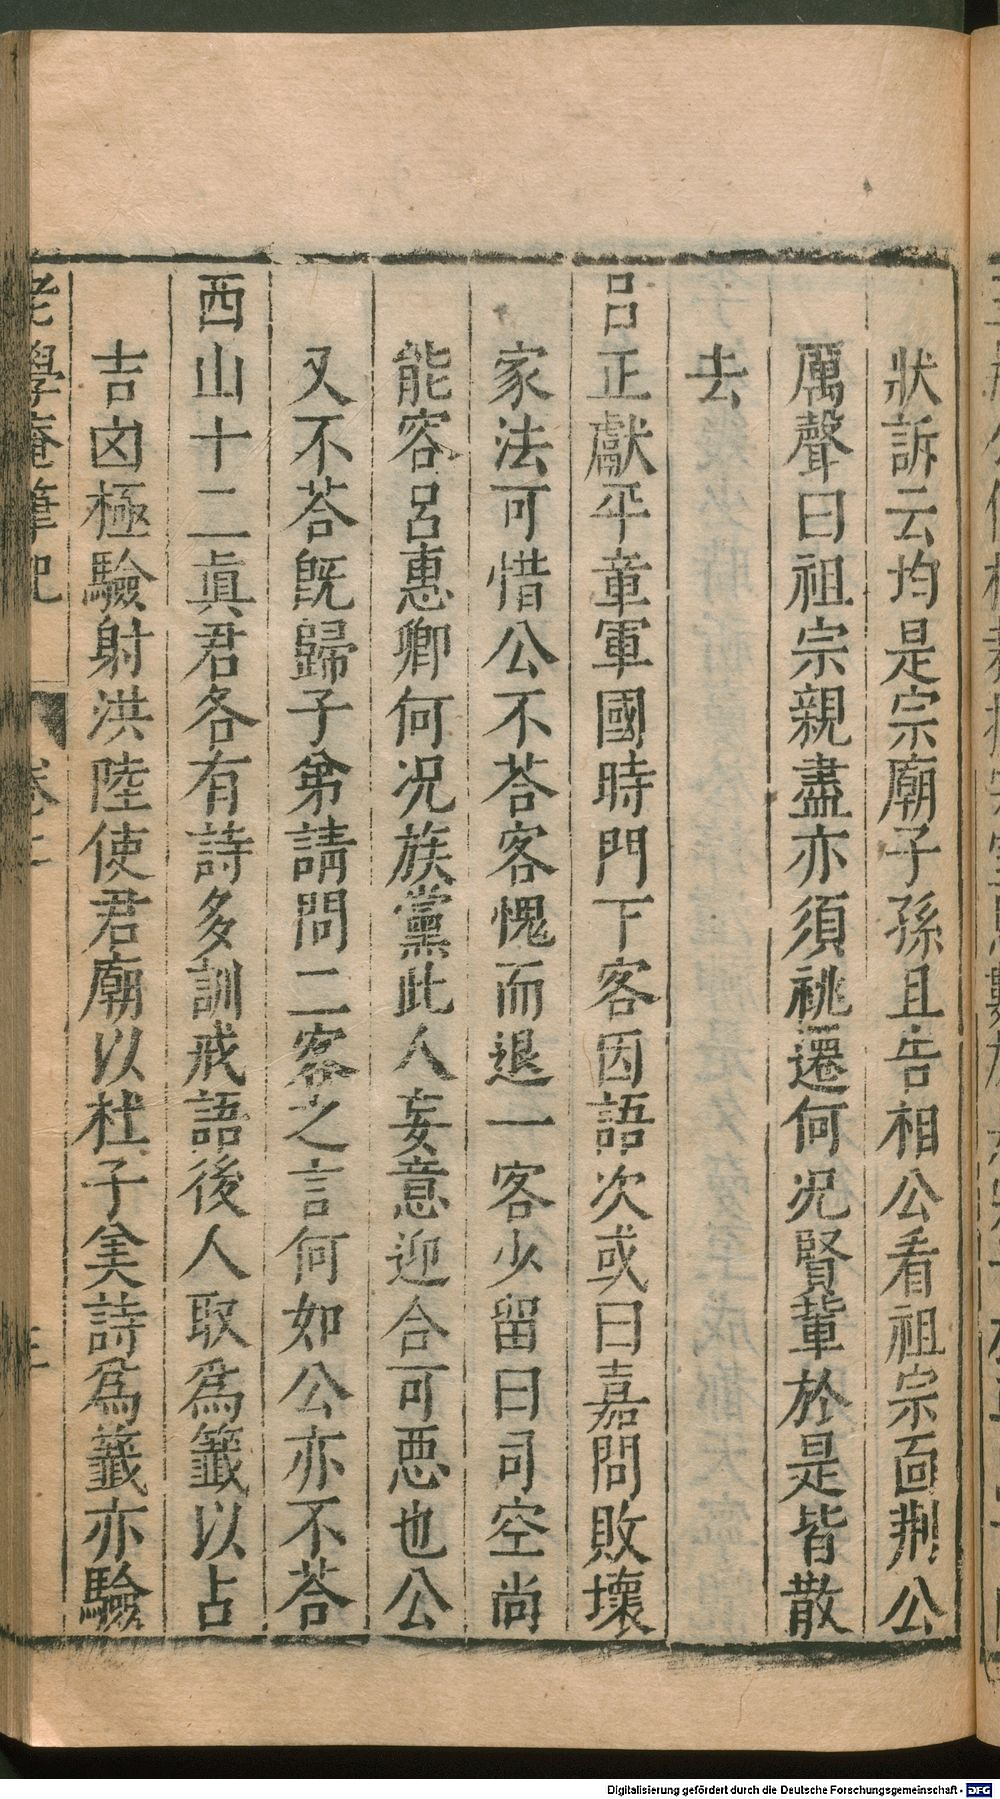 狀訴云均是宗廟子孫且告相公看祖宗靣荆公
厲聲曰祖宗親盡亦須祧遷何况賢輩於是皆散
去
呂正獻平章軍國時門下客因語次或曰嘉問敗壞
家法可惜公不荅客愧而退一客少留曰司空尚
能容呂惠卿何况族黨此人妄意迎合可惡也公
又不荅旣歸子弟請問二客之言何如公亦不荅
西山十二眞君各有詩多訓戒語後人取爲籤以占
吉凶極驗射洪陸使君廟以杜子美詩爲籤亦驗
老學庵筆記 卷二
Digitalisierung gefördert durch die Deutsche Forschungsgemeinschaft - DFG